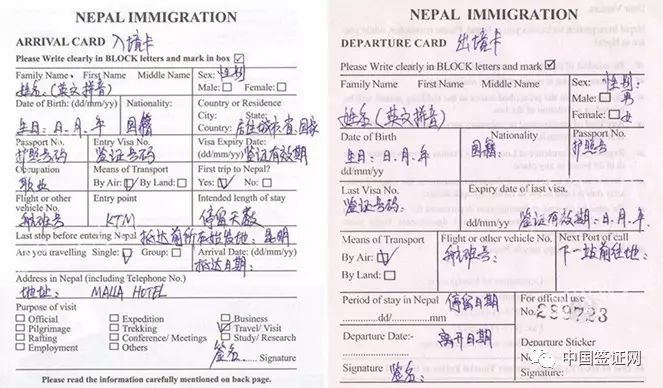 NEPAL IMMIGRATION
ARRIVAL CARD 入境卡
Please Write clearly in BLOCK letters and mark in box ☑
Family Name, First Name Middle Name
姓名:(英文拼音)
Sex: 性别
Male: Female:
Date of Birth: (dd/mm/yy)
生日:日.月.年
Nationality:
国籍
Country or Residence
City: State:
Country: 居住城市.省.国家
Passport No.
护照号码
Entry Visa No.
签证号码
Visa Expiry Date:
(dd/mm/yy) 签证有效期
Occupation
职业
Means of Transport
By Air: ☑ By Land:
First trip to Nepal?
Yes: ☑ No:
Flight or other
vehicle No.
航班号
Entry point
KTM
Intended length of stay
停留天数
Last stop before entering Nepal 抵达前所在始发地:昆明
Are you travelling Single: ☑ Group:
Arrival Date: (dd/mm/yy)
抵达日期:
Address in Nepal (including Telephone No.)
地址: MALLA HOTEL
Purpose of visit
Official Expedition Business
Pilgrimage Trekking ☑ Travel/ Visit
Rafting Conference/ Meetings Study/ Research
Employment Others
签名 Signature
Please read the information carefully mentioned on back page.
NEPAL IMMIGRATION
DEPARTURE CARD 出境卡
Please Write clearly in BLOCK letters and mark ☑
Family Name First Name Middle Name
姓名(英文拼音)
Sex: 性别:
Male: 男
Female: 女
Date of Birth
生日:日.月.年
Nationality
国籍:
Passport No.
护照号
Last Visa No.
签证号码:
Expiry date of last visa.
dd/mm/yy 签证有效期:日.月.年
Means of Transport
By Air: ☑
By Land:
Flight or other vehicle No.
航班号:
Next Port of call
下一站前往地:
Period of stay in Nepal 停留日期
dd/ mm
For official use
No. 289723
Departure Date:- 离开日期
Departure Sticker
Signature 签名:
中国签证网